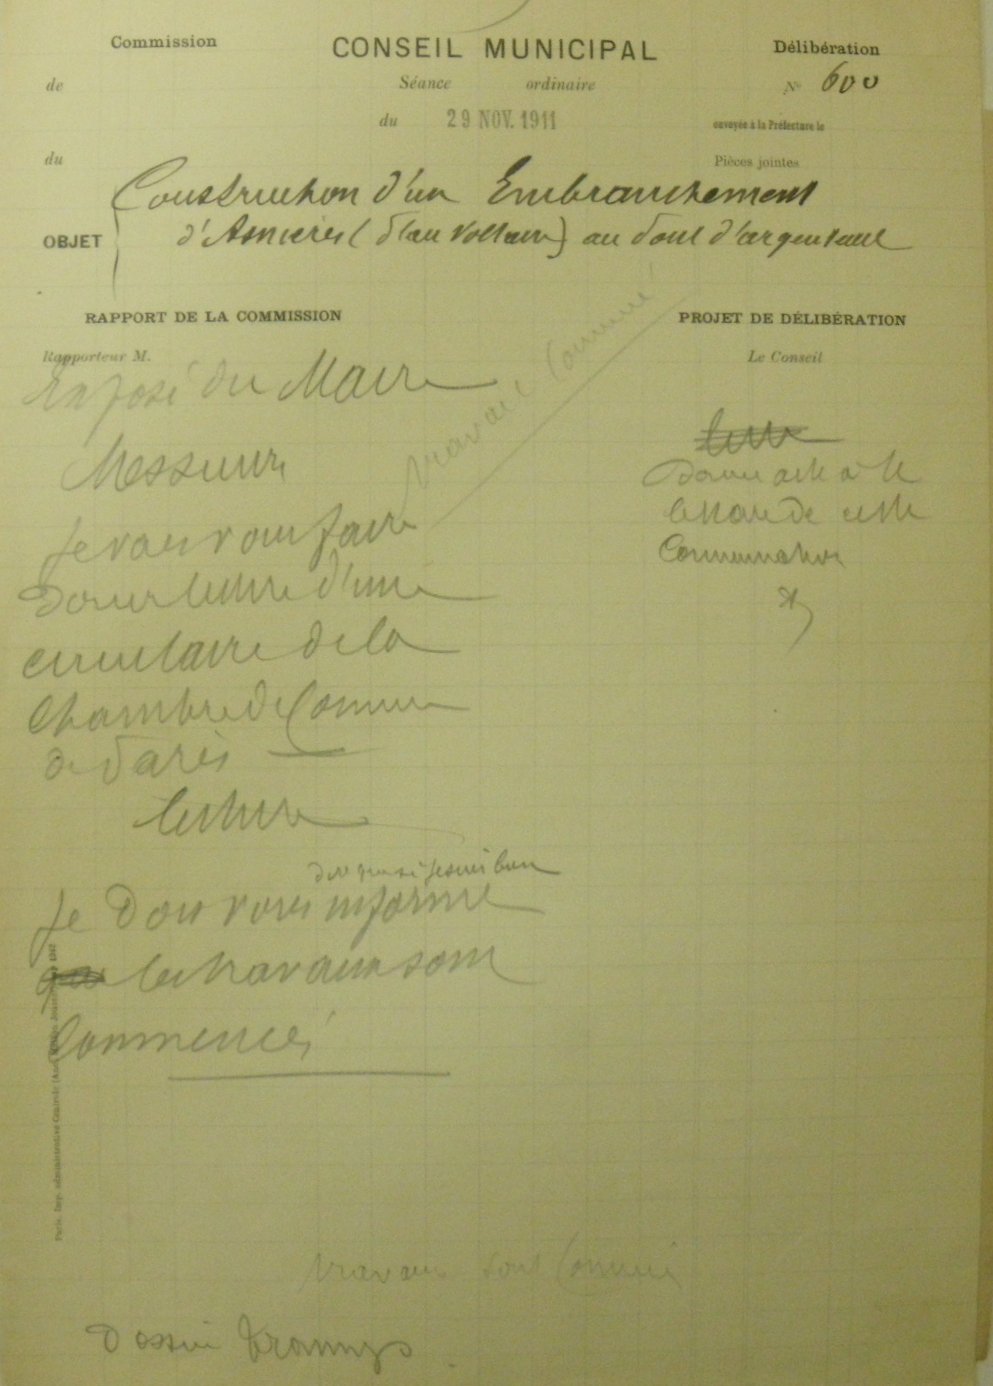 Commission
CONSEIL MUNICIPAL
Délibération
de
Séance ordinaire
N° 600
du 29 NOV. 1911
envoyée à la Préfecture le
du
Pièces jointes
Construction d'un Embranchement
OBJET
d'Asnières (Place Voltaire) au Pont d'argenteuil
RAPPORT DE LA COMMISSION
PROJET DE DÉLIBÉRATION
Rapporteur M.
Le Conseil
travaux Commencé
Exposé du Maire
Messieurs
Je vais vous faire
Donner lecture d'une
circulaire de la
Chambre de Commerce
de Paris
lecture
Je Dois vous informer
que les travaux sont
Commencés
Donne acte à M
le Maire de cette
Communication
travaux sont Commencé
Dossier Tramways
Paris. Imp. administrative Centrale